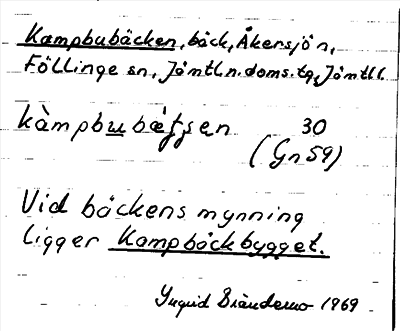 Kampbubäcken, bäck, Åkersjön,
Föllinge sn, Jämtl. n. doms. tg, Jämtl l.
kàmpbu̲bæ̀ʃʃen 30
(Gn 59)
Vid bäckens mynning
ligger Kampbäckbygget.
Ingrid 1969